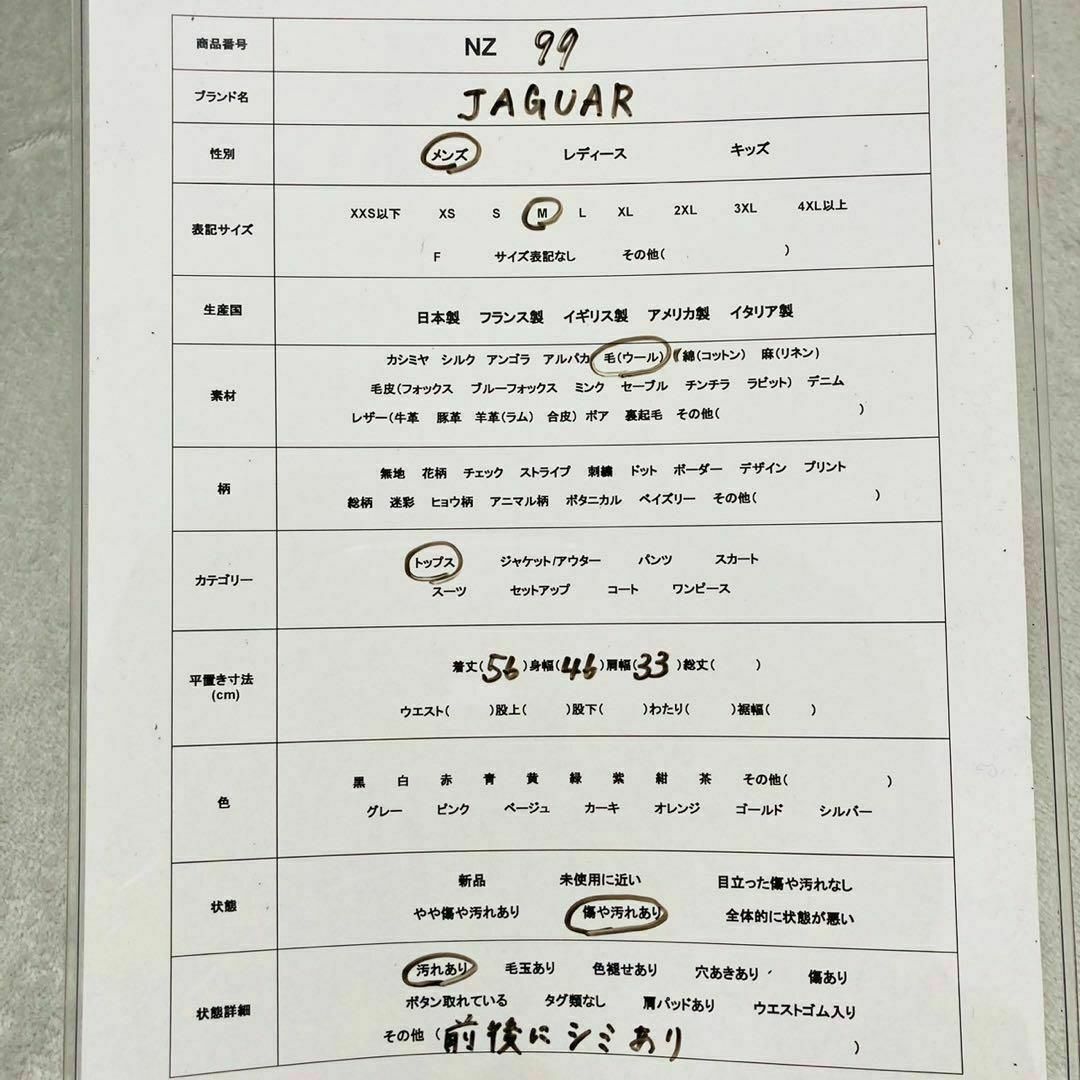 商品番号 NZ 99
ブランド名 JAGUAR
性別 メンズ レディース キッズ
表記サイズ
XXS以下 XS S M L XL 2XL 3XL 4XL以上
F サイズ表記なし その他( )
生産国 日本製 フランス製 イギリス製 アメリカ製 イタリア製
素材
カシミヤ シルク アンゴラ アルパカ 毛(ウール) 綿(コットン) 麻(リネン)
毛皮(フォックス ブルーフォックス ミンク セーブル チンチラ ラビット) デニム
レザー(牛革 豚革 羊革(ラム) 合皮) ボア 裏起毛 その他( )
柄
無地 花柄 チェック ストライプ 刺繍 ドット ボーダー デザイン プリント
総柄 迷彩 ヒョウ柄 アニマル柄 ボタニカル ペイズリー その他( )
カテゴリー
トップス ジャケット/アウター パンツ スカート
スーツ セットアップ コート ワンピース
平置き寸法
(cm)
着丈(56)身幅(46)肩幅(33)総丈( )
ウエスト( )股上( )股下( )わたり( )裾幅( )
色
黒 白 赤 青 黄 緑 紫 紺 茶 その他( )
グレー ピンク ベージュ カーキ オレンジ ゴールド シルバー
状態
新品 未使用に近い 目立った傷や汚れなし
やや傷や汚れあり 傷や汚れあり 全体的に状態が悪い
状態詳細
汚れあり 毛玉あり 色褪せあり 穴あきあり 傷あり
ボタン取れている タグ類なし 肩パッドあり ウエストゴム入り
その他 (前後にシミあり )